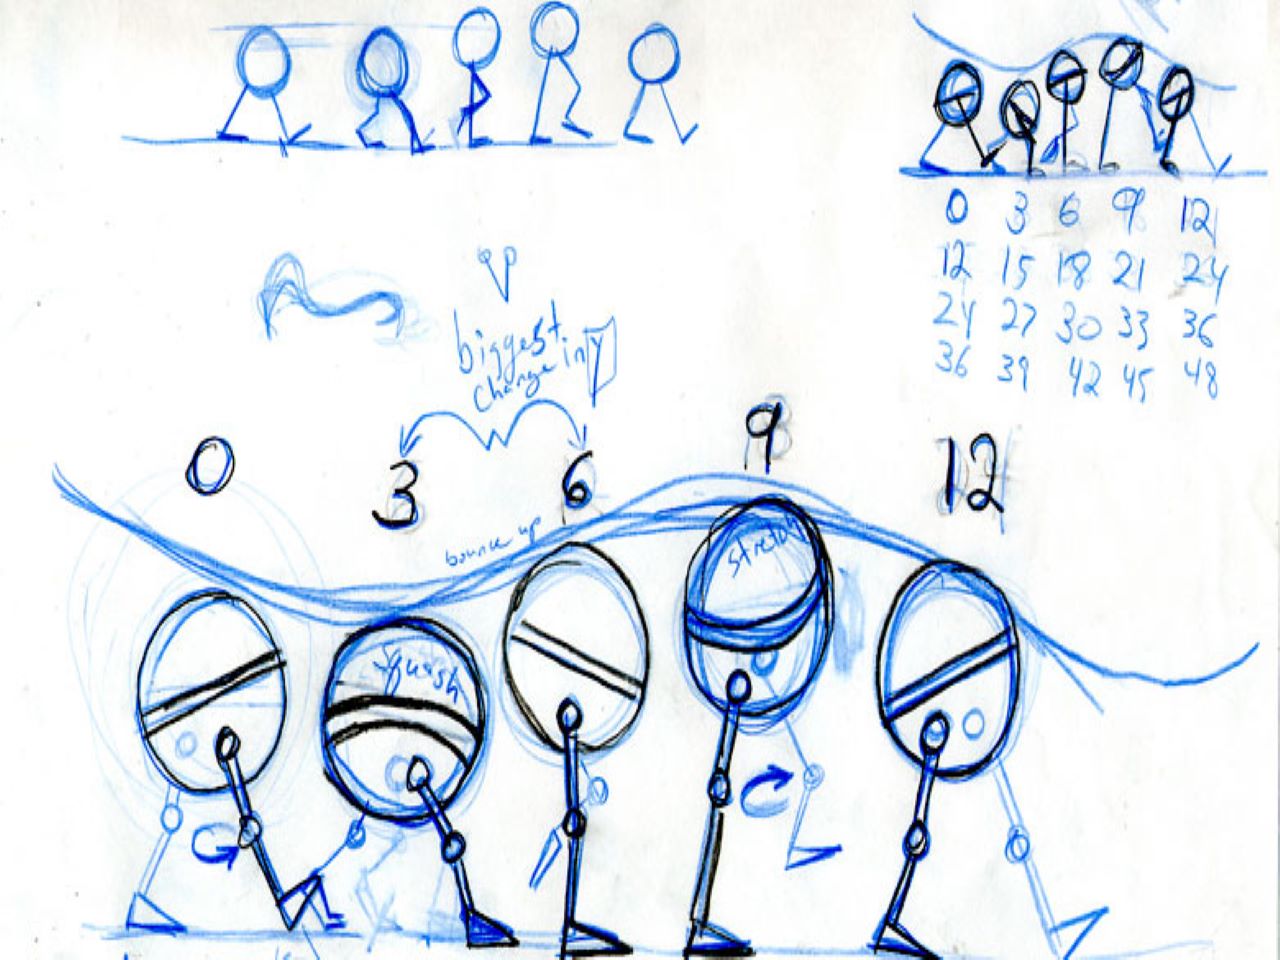 0 3 6 9 12
12 15 18 21 24
24 27 30 33 36
36 39 42 45 48
biggest
change in Y
0 3 6 9 12
bounce up
stretch
squash